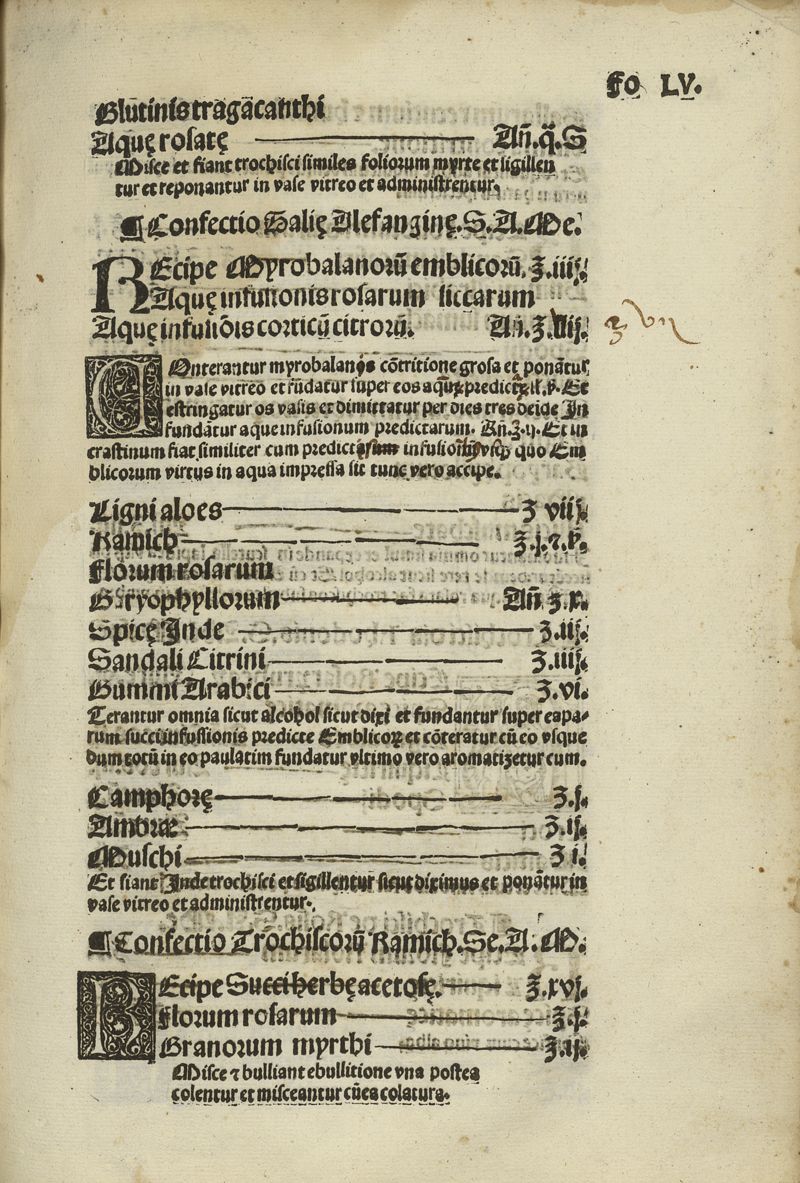 fo LV.
Glutinis tragacanthi
Aquę rosatę Añ. q̃. S
Misce et fiant trochisci similes foliorum myrte et sigillen
tur et reponantur in vase vitreo et administrentur.
¶ Confectio Galię Alefanginę. S. A. Me.
REcipe Myrobalanorũ emblicorũ. ʒ. iiij.
Aquę infusionis rosarum siccarum
Aquę infusiõis corticũ citrorũ. Añ. ʒ.
COnterantur myrobalanis cõtritione grosa et ponãtur
in vase vitreo et fũdatur super eos
estringatur os vasis et dimittatur per dies tres deĩde In
fundãtur aque infusionum predictarum. Añ. ʒ. ij. Et in
crastinum fiat similiter cum quo Em
blicorum virtus in aqua impressa sit tunc vero accipe.
Ligni aloes ʒ viij.
Ramich ʒ. j. ⁊. ß.
Florum rosarum
Garyophyllorum Añ ʒ. x.
Spicę Inde ʒ. iij.
Sandali Citrini ʒ. iiij.
Gummi Arabici ʒ. vi.
Terantur omnia sicut alcohol sicut dixi et fundantur super ea pa/
rum succi infussionis predicte Emblicoꝝ et cõteratur cũ eo vsque
dum totũ in eo paulatim fundatur vltimo vero aromatizetur cum.
Camphorę ʒ. j.
Ambræ ʒ. ij.
Muschi ʒ i.
Et fiant Inde trochisci et sigillentur sicut diximus et ponãtur in
vase vitreo et administrentur.
¶ Confectio Trochiscorũ Ramich. Se. A. M.
REcipe Succi herbę acetosę. ʒ. xvj.
Florum rosarum ʒ. j.
Granorum myrthi ʒ. ij.
Misce ⁊ bulliant ebullitione vna postea
colentur et misceantur cũ ea colatura.